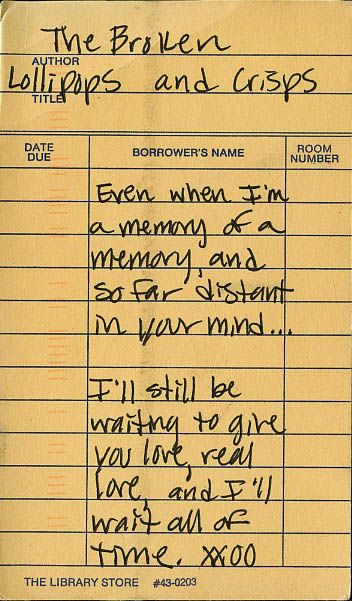 The Broken
AUTHOR
Lollipops and Crisps
TITLE
DATE DUE
BORROWER'S NAME
ROOM NUMBER
Even when I'm
a memory of a
memory, and
so far distant
in your mind...
I'll still be
waiting to give
you love, real
love, and I'll
wait all of
time. XXOO
THE LIBRARY STORE #43-0203